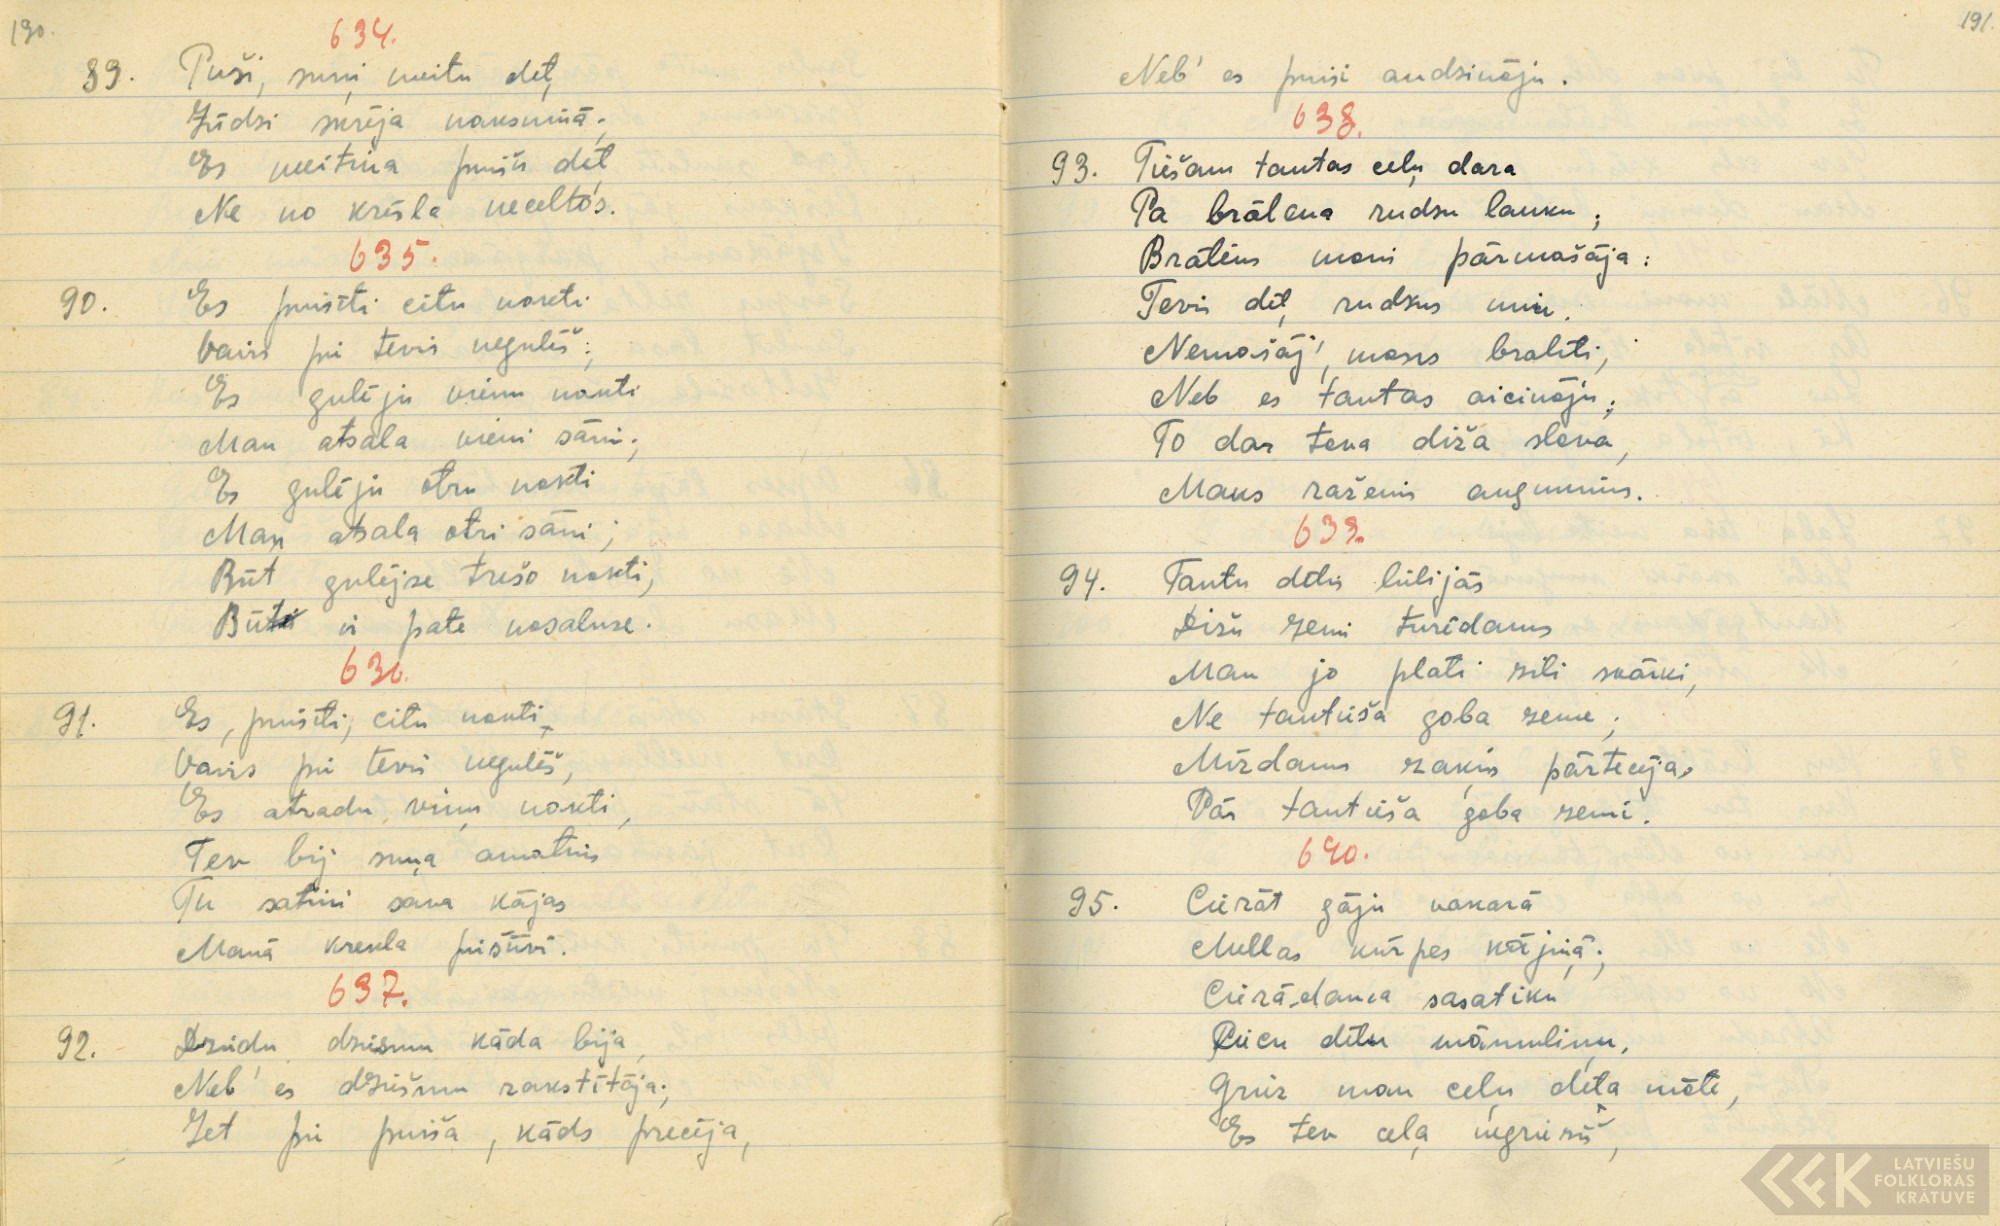 190.
634.
89. Puši, suņi, meitu dēļ,
Zūdzi skrēja naksniņā;
Es meitiņa puišu dēļ
Ne no krēsla necēltōs.
635.
90. Es puisīti citu nakti
Vairs pi tevis negulēš;
Es gulēju vienu nakti
Man atsala vieni sāni;
Es gulēju otru nakti
Man atsala otri sāni;
Būt gulējse trešo nakti,
Būt vi pate nosaluse.
636.
91. Es, puisīti, citu nakti,
Vairs pi tevis negulēš,
Es atradu viņu nakti,
Tev bij suņa amatiņis
Tu satini sava kājas
Manā krekla pisūvi.
637.
92. Dziedu dziesmu kāda bija,
Neb' es dziešmu rakstītāja;
Iet pi puiša, kāds precēja,
191.
Neb' es puisi audzināju.
638.
93. Tiešam tautas ceļu dara
Pa brālena rudzu lauku;
Bratēns mani pārmašāja:
Tevis dēļ, rudzus min.
Nemašāj', mans bralīti,
Neb es tautas aicināju;
To dar teva diža slava,
Maks raženis augumiņis.
639.
94. Tautu dēlis lielijās
Dižu zemi turēdams
Man jo plati zili skārki,
Ne tautieša goba zeme;
Mīzdams zaķis pārtecēja
Pār tautieša goba zemi.
640.
95. Cierāt gāju vakarā
Mellas kūrpes kājiņā;
Cierā-dama sasatiku
Pieci dēlu māmuliņu,
Griez man ceļu dēla māte,
Es tev ceļa negriezīš,
LATVIEŠU
FOLKLORAS
KRĀTUVE